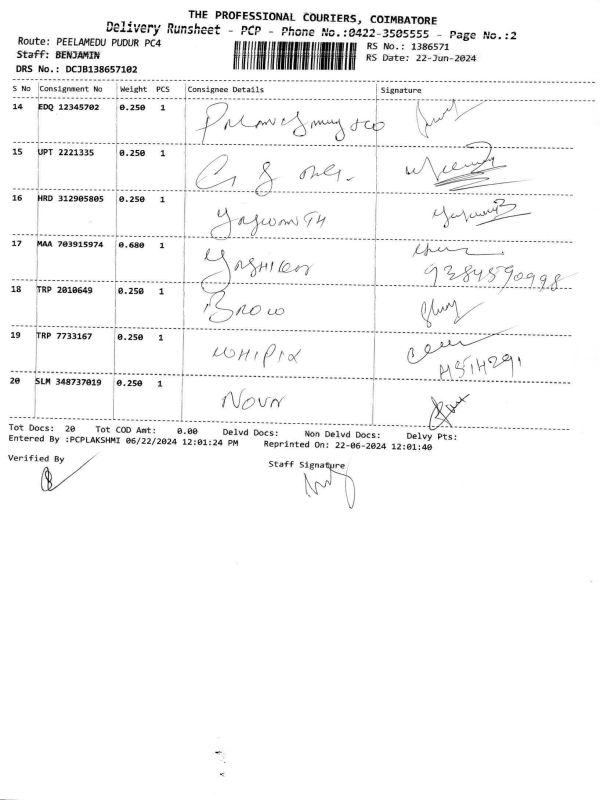 THE PROFESSIONAL COURIERS, COIMBATORE
Delivery Runsheet - PCP - Phone No.:0422-3505555 - Page No.:2
Route: PEELAMEDU PUDUR PC4
RS No.: 1386571
Staff: BENJAMIN
RS Date: 22-Jun-2024
DRS No.: DCJB138657102
S No Consignment No Weight PCS Consignee Details Signature
14 EDQ 12345702 0.250 1
15 UPT 2221335 0.250 1
16 HRD 312905805 0.250 1 Yaswanth
17 MAA 703915974 0.680 1
9384590998
18 TRP 2010649 0.250 1
19 TRP 7733167 0.250 1
20 SLM 348737019 0.250 1 NOVA
Tot Docs: 20 Tot COD Amt: 0.00 Delvd Docs: Non Delvd Docs: Delvy Pts:
Entered By :PCPLAKSHMI 06/22/2024 12:01:24 PM Reprinted On: 22-06-2024 12:01:40
Verified By
Staff Signature